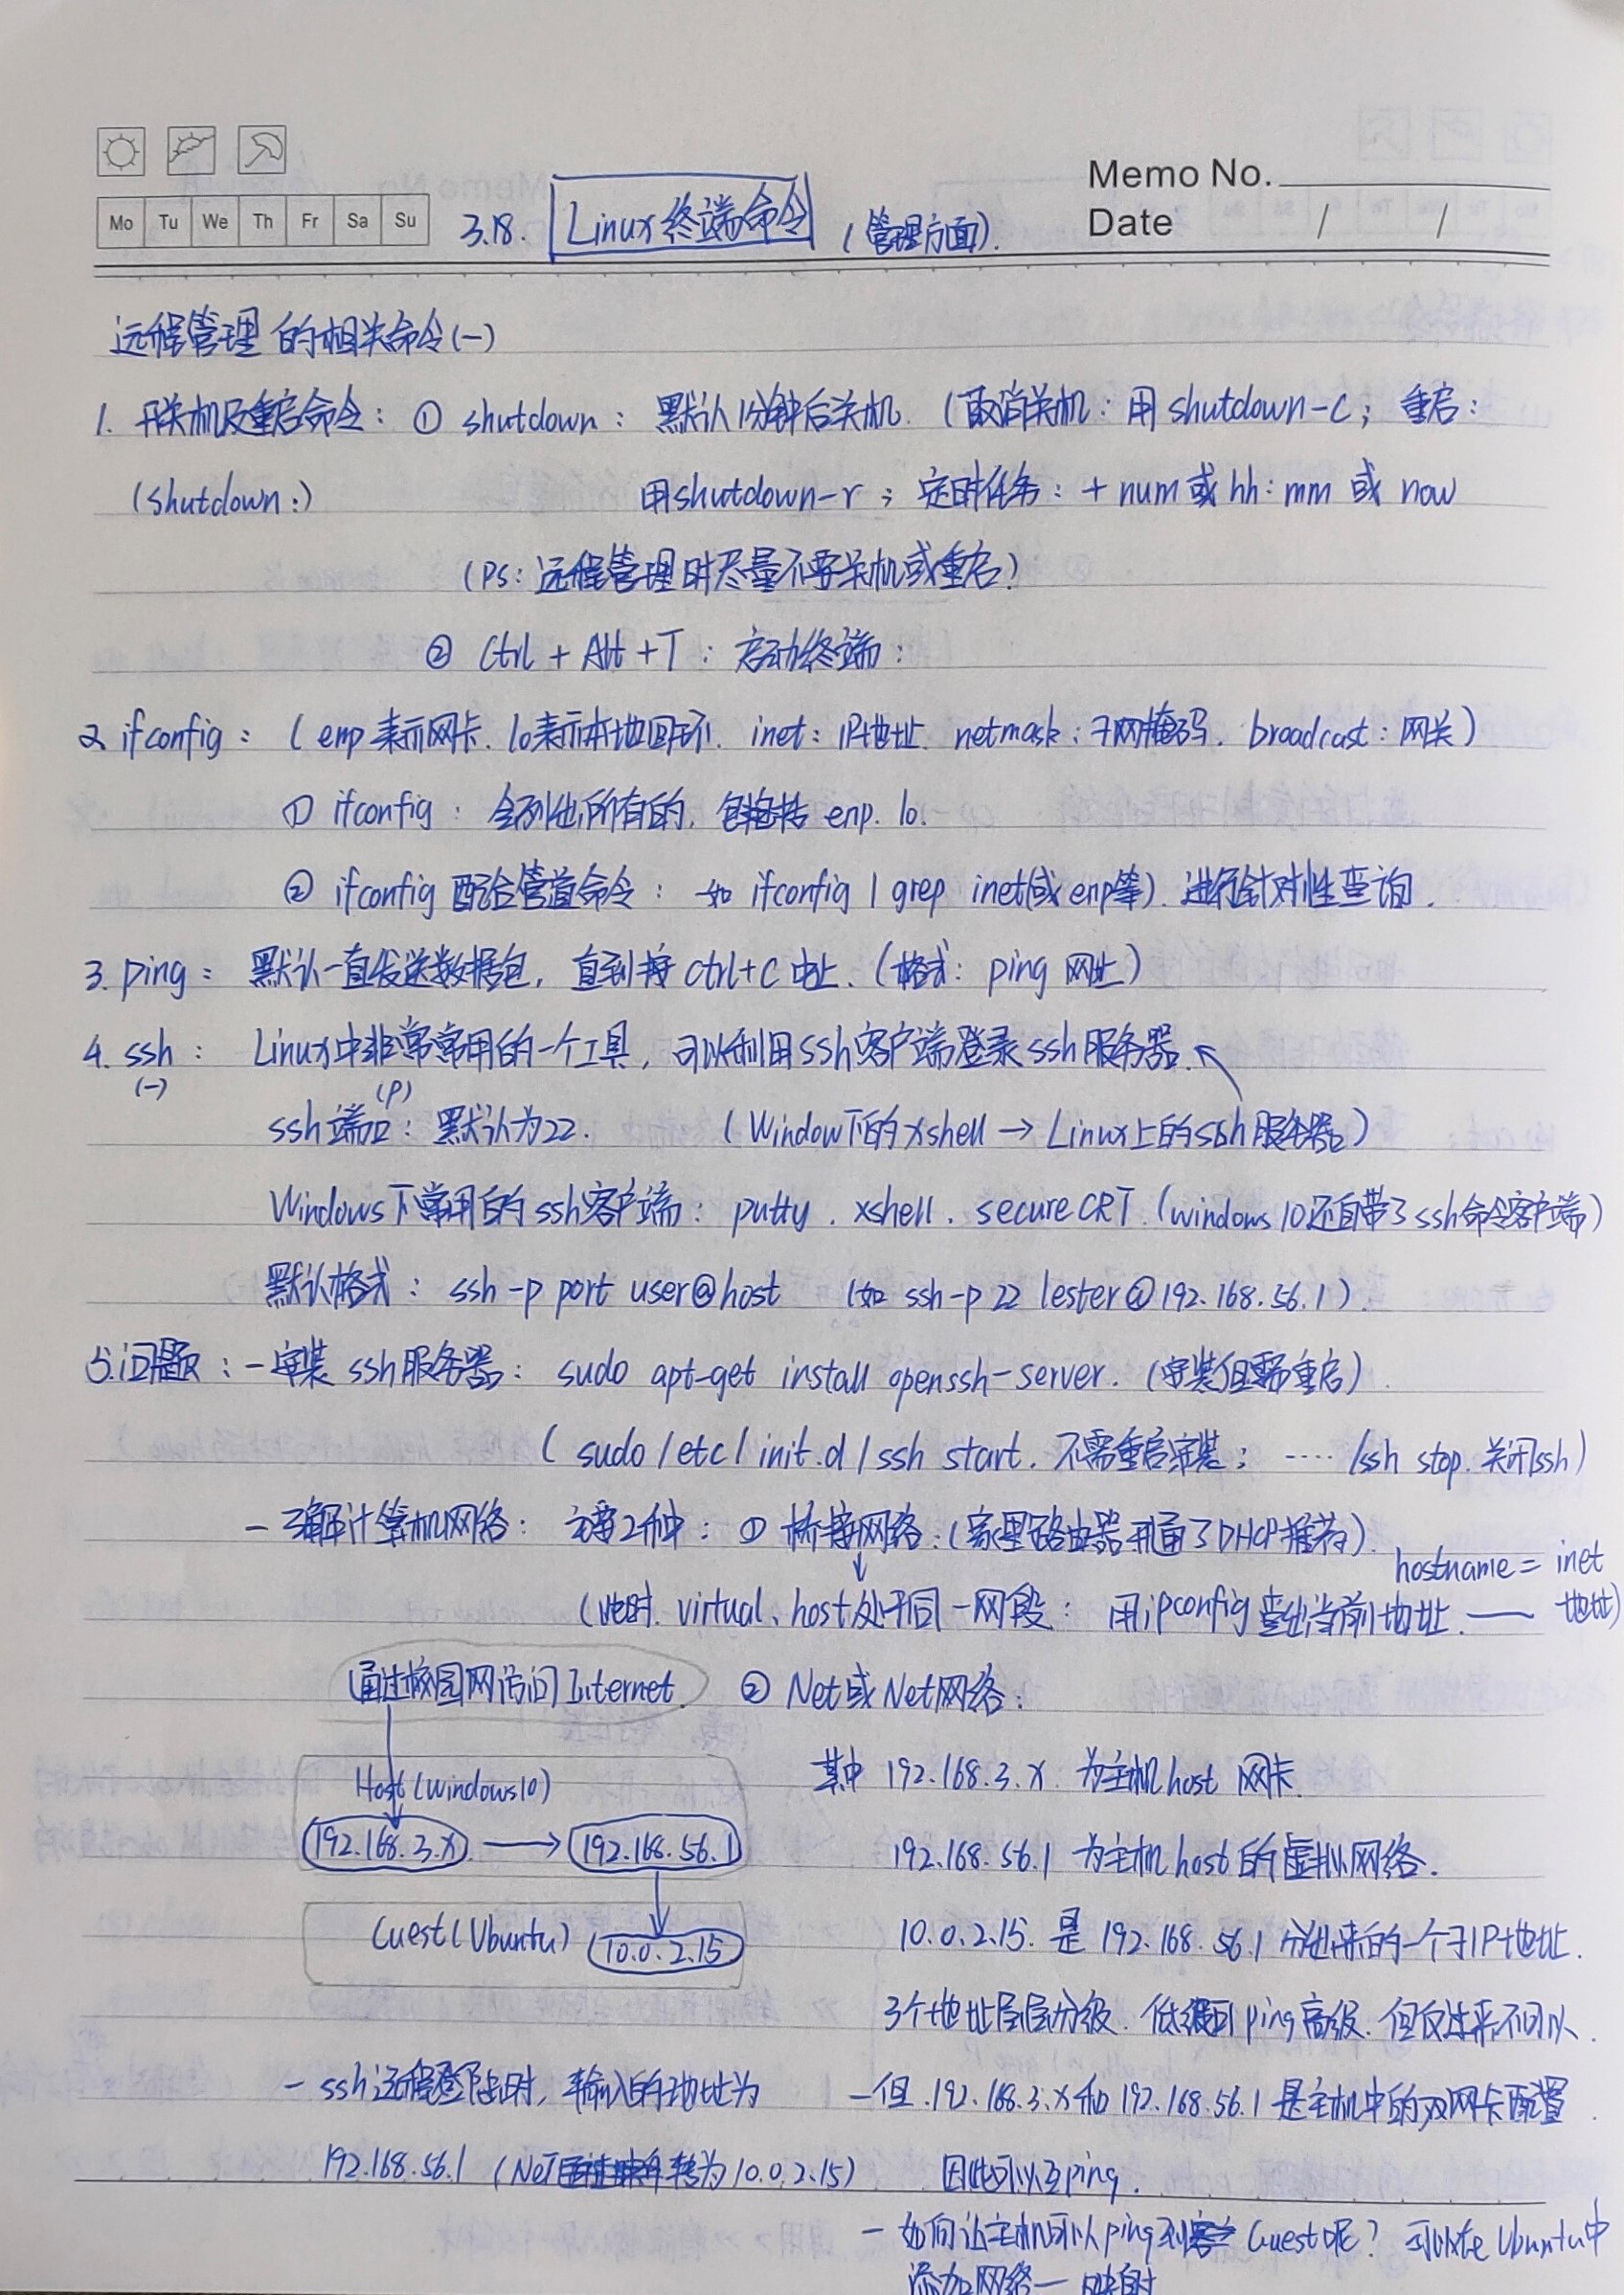 Memo No.
Date / /
Mo Tu We Th Fr Sa Su
3.18. Linux终端命令 (管理方面).
远程管理的相关命令(一)
1. 开关机及重启命令: ① shutdown: 默认1分钟后关机. (取消关机: 用 shutdown-c; 重启:
(shutdown:) 用shutdown-r; 定时任务: + num 或 hh:mm 或 now
(Ps: 远程管理时尽量不要关机或重启)
② Ctrl + Alt + T: 启动终端:
2. ifconfig: (enp 表示网卡. lo表示本地回环. inet: IP地址. netmask: 子网掩码. broadcast: 网关)
① ifconfig: 会列出所有的, 包括 enp. lo.
② ifconfig 配合管道命令: 如 ifconfig | grep inet(或enp等). 进行针对性查询.
3. ping: 默认一直发送数据包, 直到按 ctrl+C 中止. (格式: ping 网址)
4. ssh: Linux中非常常用的一个工具, 可以利用ssh客户端登录ssh服务器.
(一) (P)
ssh端口: 默认为22. (Window下的xshell → Linux上的ssh服务器)
Windows下常用的ssh客户端: putty. xshell. secureCRT. (windows 10还自带了ssh命令客户端)
默认格式: ssh -p port user@host (如 ssh-p 22 lester@192.168.56.1).
5.问题: - 安装 ssh服务器: sudo apt-get install openssh-server. (安装但需重启).
( sudo /etc/init.d/ssh start. 不需重启安装; ···· /ssh stop. 关闭ssh)
- 了解计算机网络: 主要2种: ① 桥接网络: (家里路由器开通了DHCP推荐).
hostname = inet
(此时. virtual、host处于同一网段: 用ipconfig查出当前地址. — 地址)
通过校园网访问Internet. ② Net或Net网络:
其中 192.168.3.x 为主机host 网卡.
Host(windows10)
192.168.3.x → 192.168.56.1
192.168.56.1 为主机host的虚拟网络.
Guest(Ubuntu) 10.0.2.15
10.0.2.15. 是 192.168.56.1 分出来的一个子IP地址.
3个地址层层分级. 低级可ping高级. 但反过来不可以.
- ssh远程登陆时, 输入的地址为
192.168.56.1 (NeT 转为10.0.2.15)
- 但.192.168.3.x和192.168.56.1是主机中的双网卡配置.
因此可以互ping.
- 如何让主机可以ping到 Guest呢? 可以在Ubuntu中
添加网络一 映射